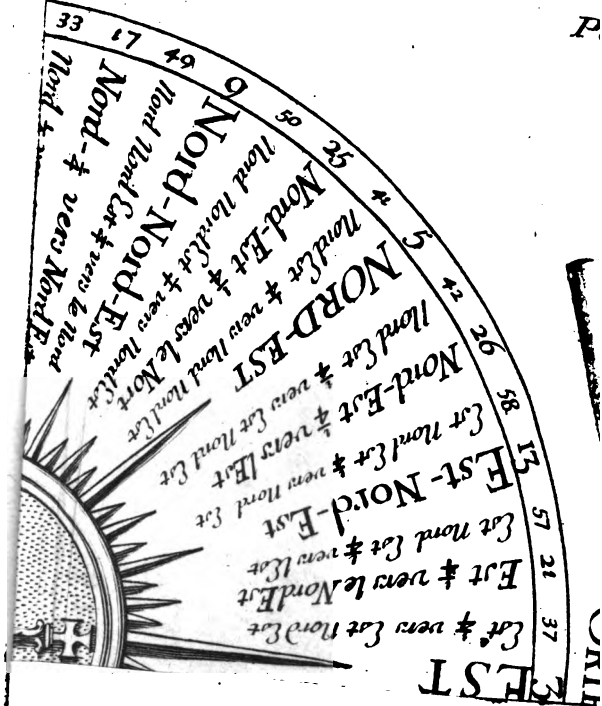 33
17
49
9
50
25
5
42
26
58
13
57
21
37
3
Nord
Nord-¼ vers Nord Est
Nord Nord Est ¼ vers le Nord
Nord-Nord-Est
Nord Nord Est ¼ vers Nord Est
Nord-Est ¼ vers le Nort
Nord Est ¼ vers Nord Nord Est
NORD-EST
Nord Est ¼ vers Est Nord Est
Nord-Est ¼ vers lEst
Est Nord Est ¼ vers Nord Est
Est-Nord-Est
Est Nord Est ¼ vers lEst
Est ¼ vers le Nord Est
Est ¼ vers Est Nord Est
EST